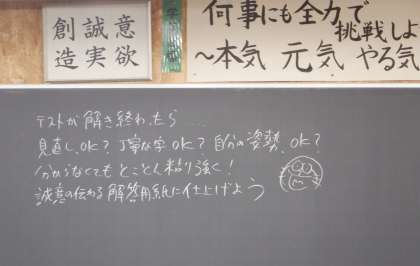 創誠意
造実欲
何事にも全力で
挑戦しよ
〜本気 元気 やる気
テストが解き終わったら…
見直し、OK？丁寧な字OK？自分の姿勢、OK？
分からなくてもとことん粘り強く！
誠意の伝わる解答用紙に仕上げよう